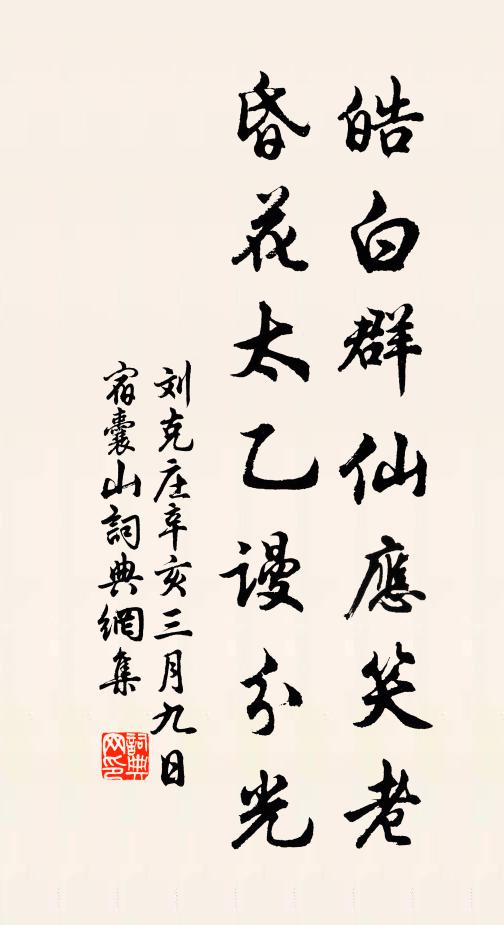 皓白群仙應笑老
昏花太乙謾分光
刘克庄辛亥三月九日
宿囊山詞典網集
詞典网印